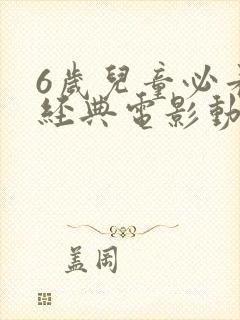 6歲兒童必
經典電影動
盖岡